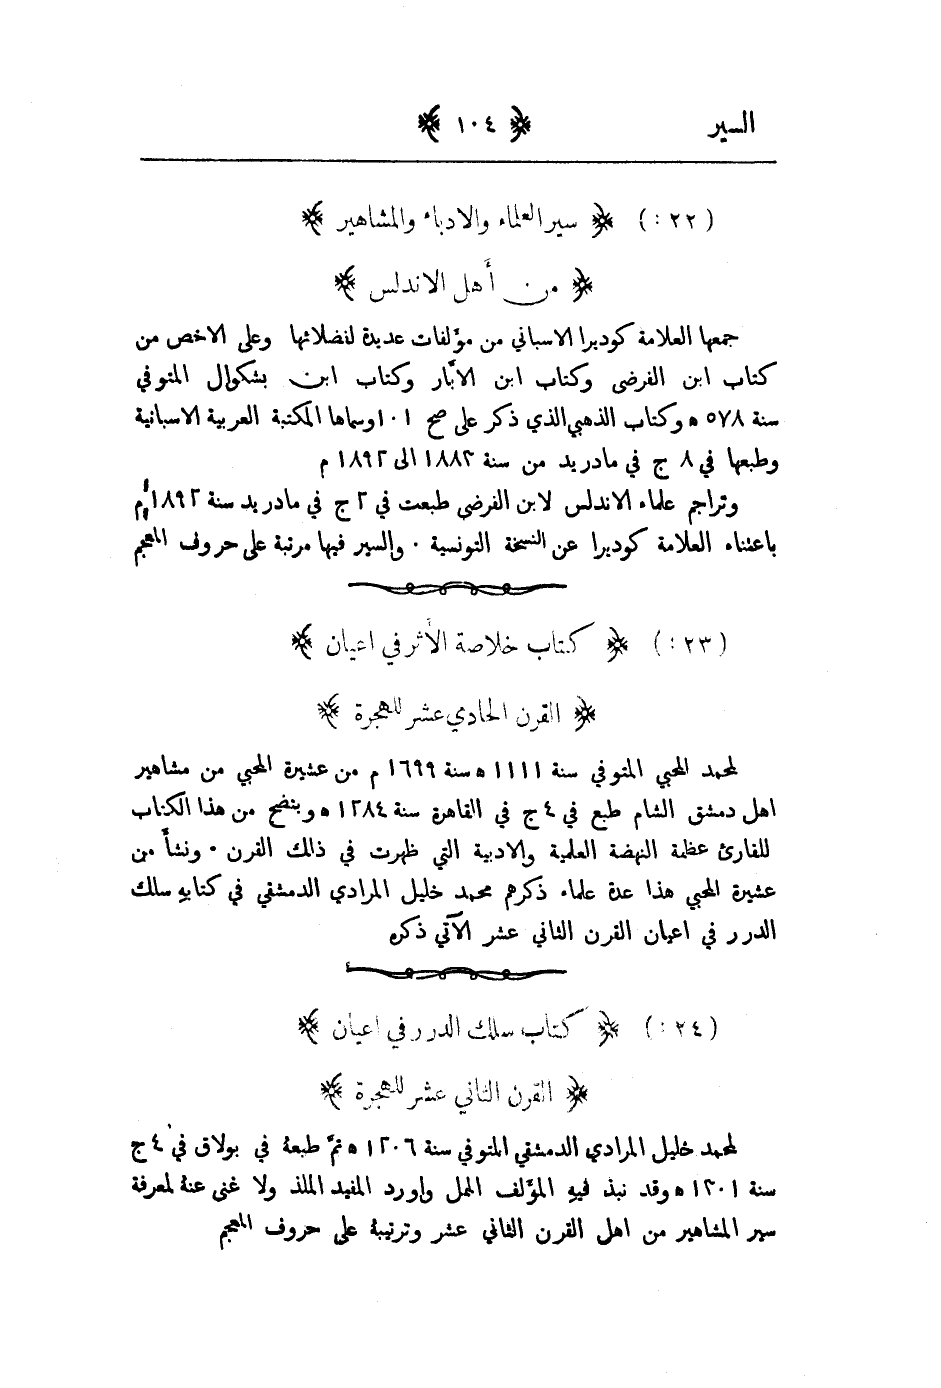 السير ﴿ ١٠٤ ﴾
(٢٢:) ﴿ سير العلماء والادباء والمشاهير ﴾
﴿ من أهل الاندلس ﴾
جمعها العلامة كوديرا الاسباني من مؤلفات عديدة لفضلائها وعلى الاخص من
كتاب ابن الفرضي وكتاب ابن الابَّار وكتاب ابن بشكوال المتوفي
سنة ٥٧٨ ه وكتاب الذهبي الذي ذكر على صح ١٠١ وسماها المكتبة العربية الاسبانية
وطبعها في ٨ ج في مادريد من سنة ١٨٨٢ الى ١٨٩٢ م
وتراجم علماء الاندلس لابن الفرضي طبعت في ٢ ج في مادريد سنة ١٨٩٢ م
باعتناء العلامة كوديرا عن النسخة التونسية . والسير فيها مرتبة على حروف المعجم
(٢٣:) ﴿ كتاب خلاصة الأثر في اعيان ﴾
﴿ القرن الحادي عشر للهجرة ﴾
لمحمد المحبي المتوفي سنة ١١١١ ه سنة ١٦٩٩ م من عشيرة المحبي من مشاهير
اهل دمشق الشام طبع في ٤ ج في القاهرة سنة ١٢٨٤ ه ويتضح من هذا الكتاب
للقارئ عظمة النهضة العلمية والادبية التي ظهرت في ذالك القرن . ونشأ من
عشيرة المحبي هذا عدة علماء ذكرهم محمد خليل المرادي الدمشقي في كتابهِ سلك
الدرر في اعيان القرن الثاني عشر الآتي ذكره
(٢٤:) ﴿ كتاب سلك الدرر في اعيان ﴾
﴿ القرن الثاني عشر للهجرة ﴾
لمحمد خليل المرادي الدمشقي المتوفي سنة ١٢٠٦ ه تمَّ طبعهُ في بولاق في ٤ ج
سنة ١٢٠١ ه وقد نبذ فيهِ المؤلف الممل واورد المفيد الملذ ولا غنى عنهُ لمعرفة
سير المشاهير من اهل القرن الثاني عشر وترتيبهُ على حروف المعجم